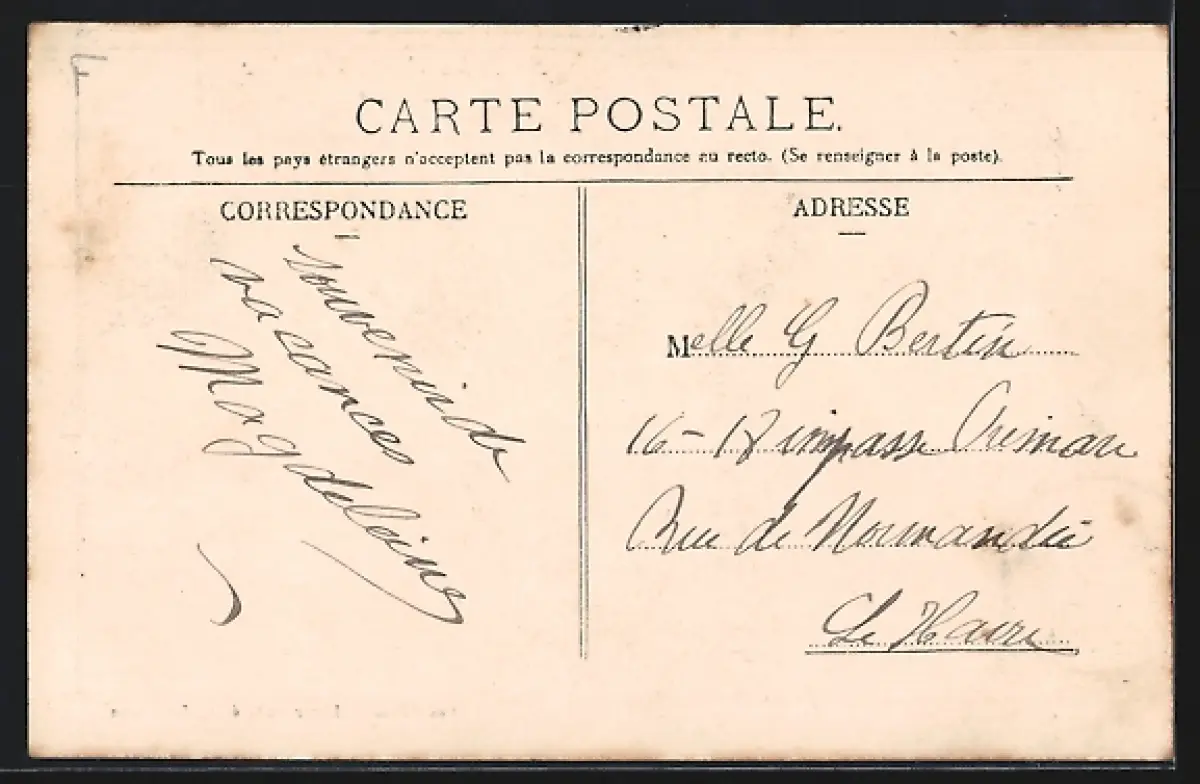 CARTE POSTALE.
Tous les pays étrangers n'acceptent pas la correspondance au recto. (Se renseigner à la poste).
CORRESPONDANCE
Souvenir de
vacances
Magdeleine
ADRESSE
Melle G Bertin
16-18 impasse
Rue de Normandie
Le Havre